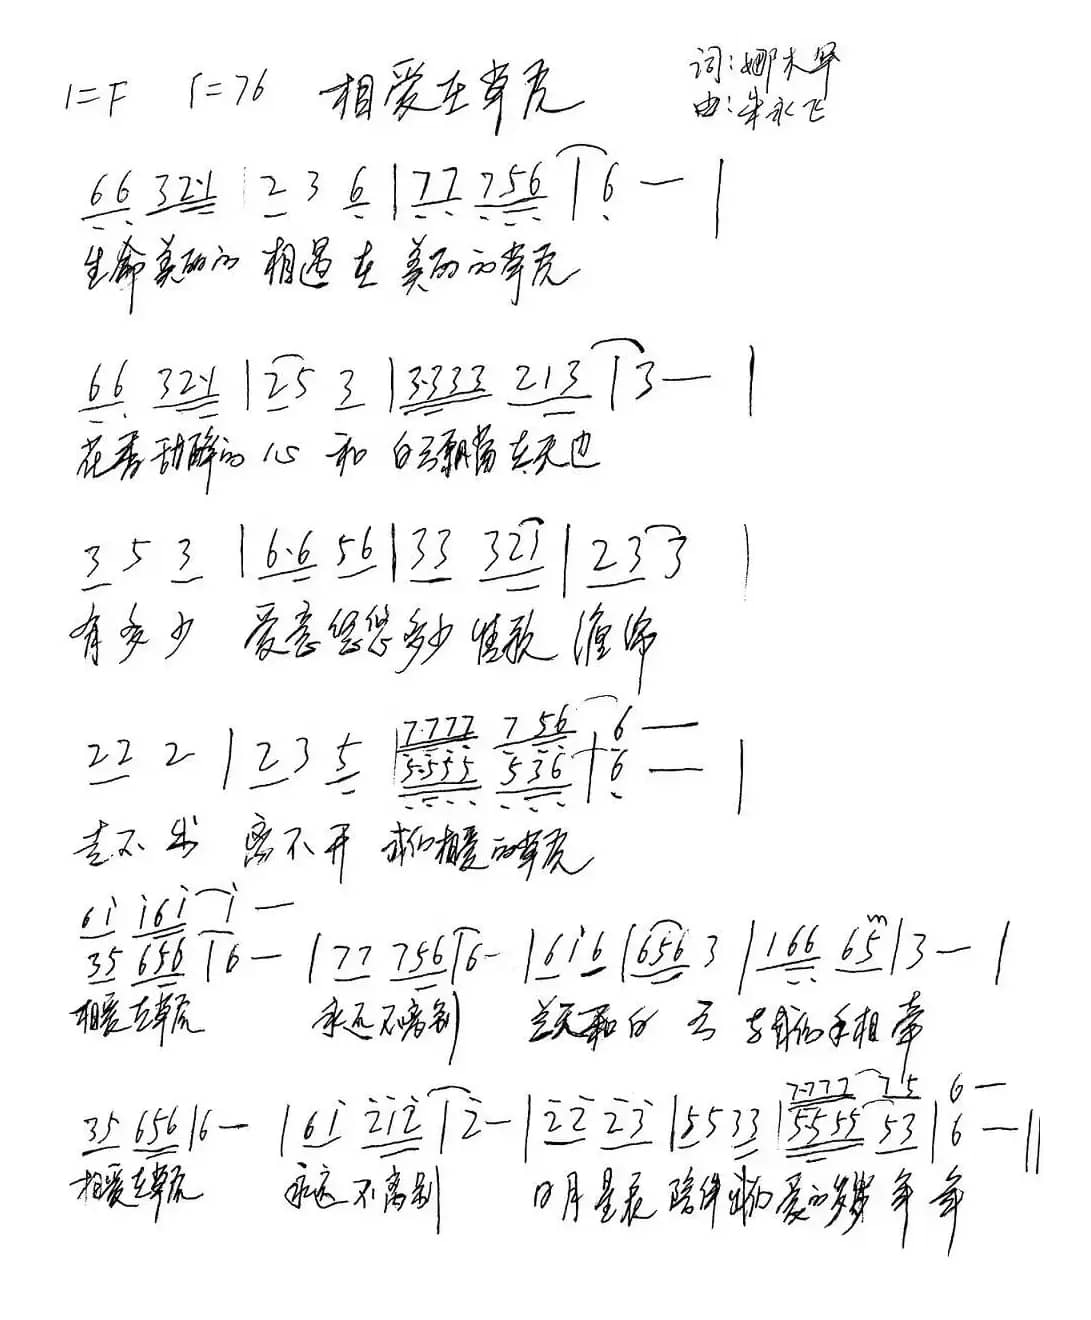 1=F ♩=76 相爱在草原 词:娜木罕
曲:朱永飞
66 32·1 | 2 3 6 | 77 756 | 6 — |
生命美丽的 相遇在 美丽的草原
66 32·1 | 25 3 | 3·333 213 | 3 — |
花香甜醉的 心 和 白云飘荡在天边
3 5 3 | 6·6 56 | 33 321 | 23 3 |
有多少 爱意悠悠多少情歌 缠绵
7·777 7 56 6 —
22 2 | 2 3 5 | 5·555 536 | 6 — |
走不出 离不开 我们相爱的草原
61̇ 1̇61̇ 1̇ —
35 656 | 6 — | 77 756 | 6 - | 61̇6 | 656 3 | 166 65 | 3 — |
相爱在草原 永远不离别 兰天和白 云 与我们手相牵
7·777 75 6 —
35 656 | 6 — | 61̇ 2̇1̇2̇ | 2̇ — | 2̇2̇ 2̇3̇ | 55 33 | 5·555 53 | 6 — ||
相爱在草原 永远不离别 日月星辰 陪伴我们 爱的岁岁年年